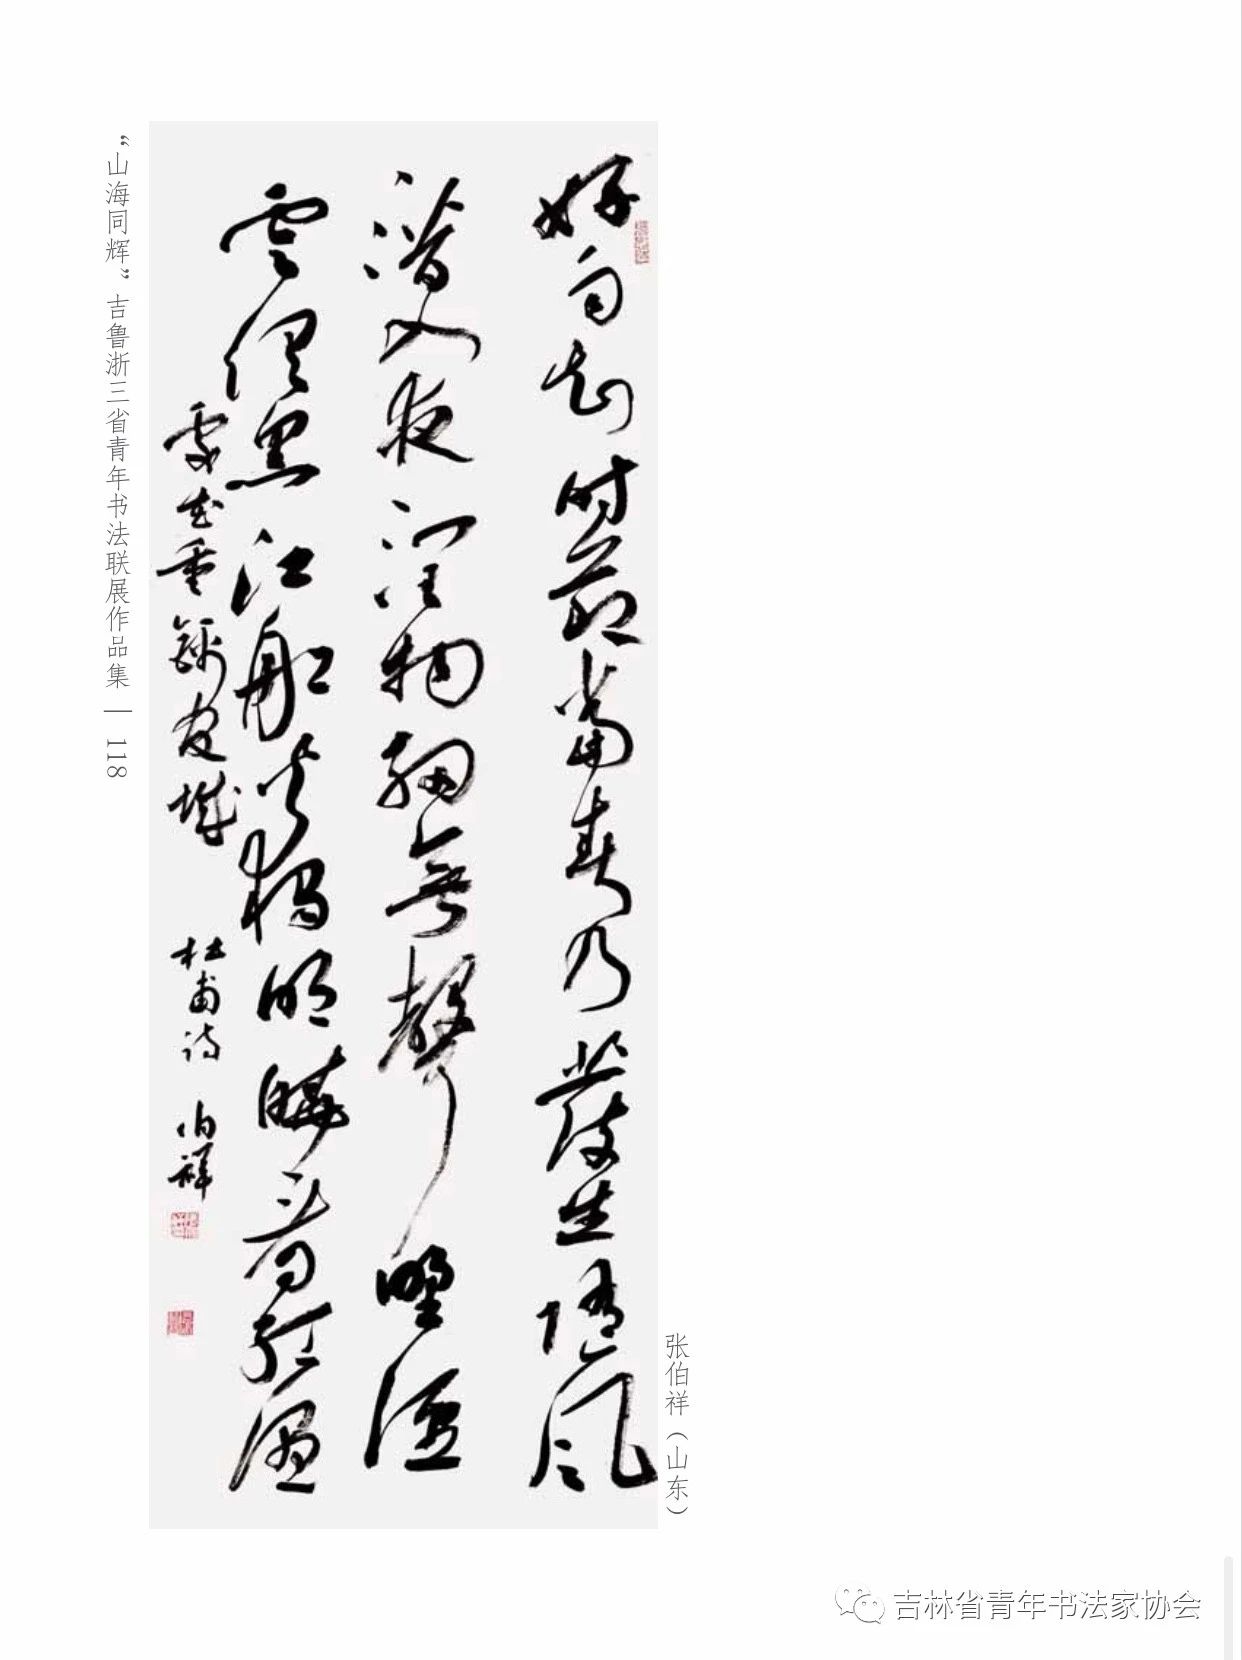 “山海同辉”吉鲁浙三省青年书法联展作品集 — 118
好雨知时節當春乃發生随风
潜入夜润物细無聲野径
雲俱黑江船火独明曉看红湿
處花重錦官城 杜甫诗 伯祥
张伯祥（山东）
吉林省青年书法家协会